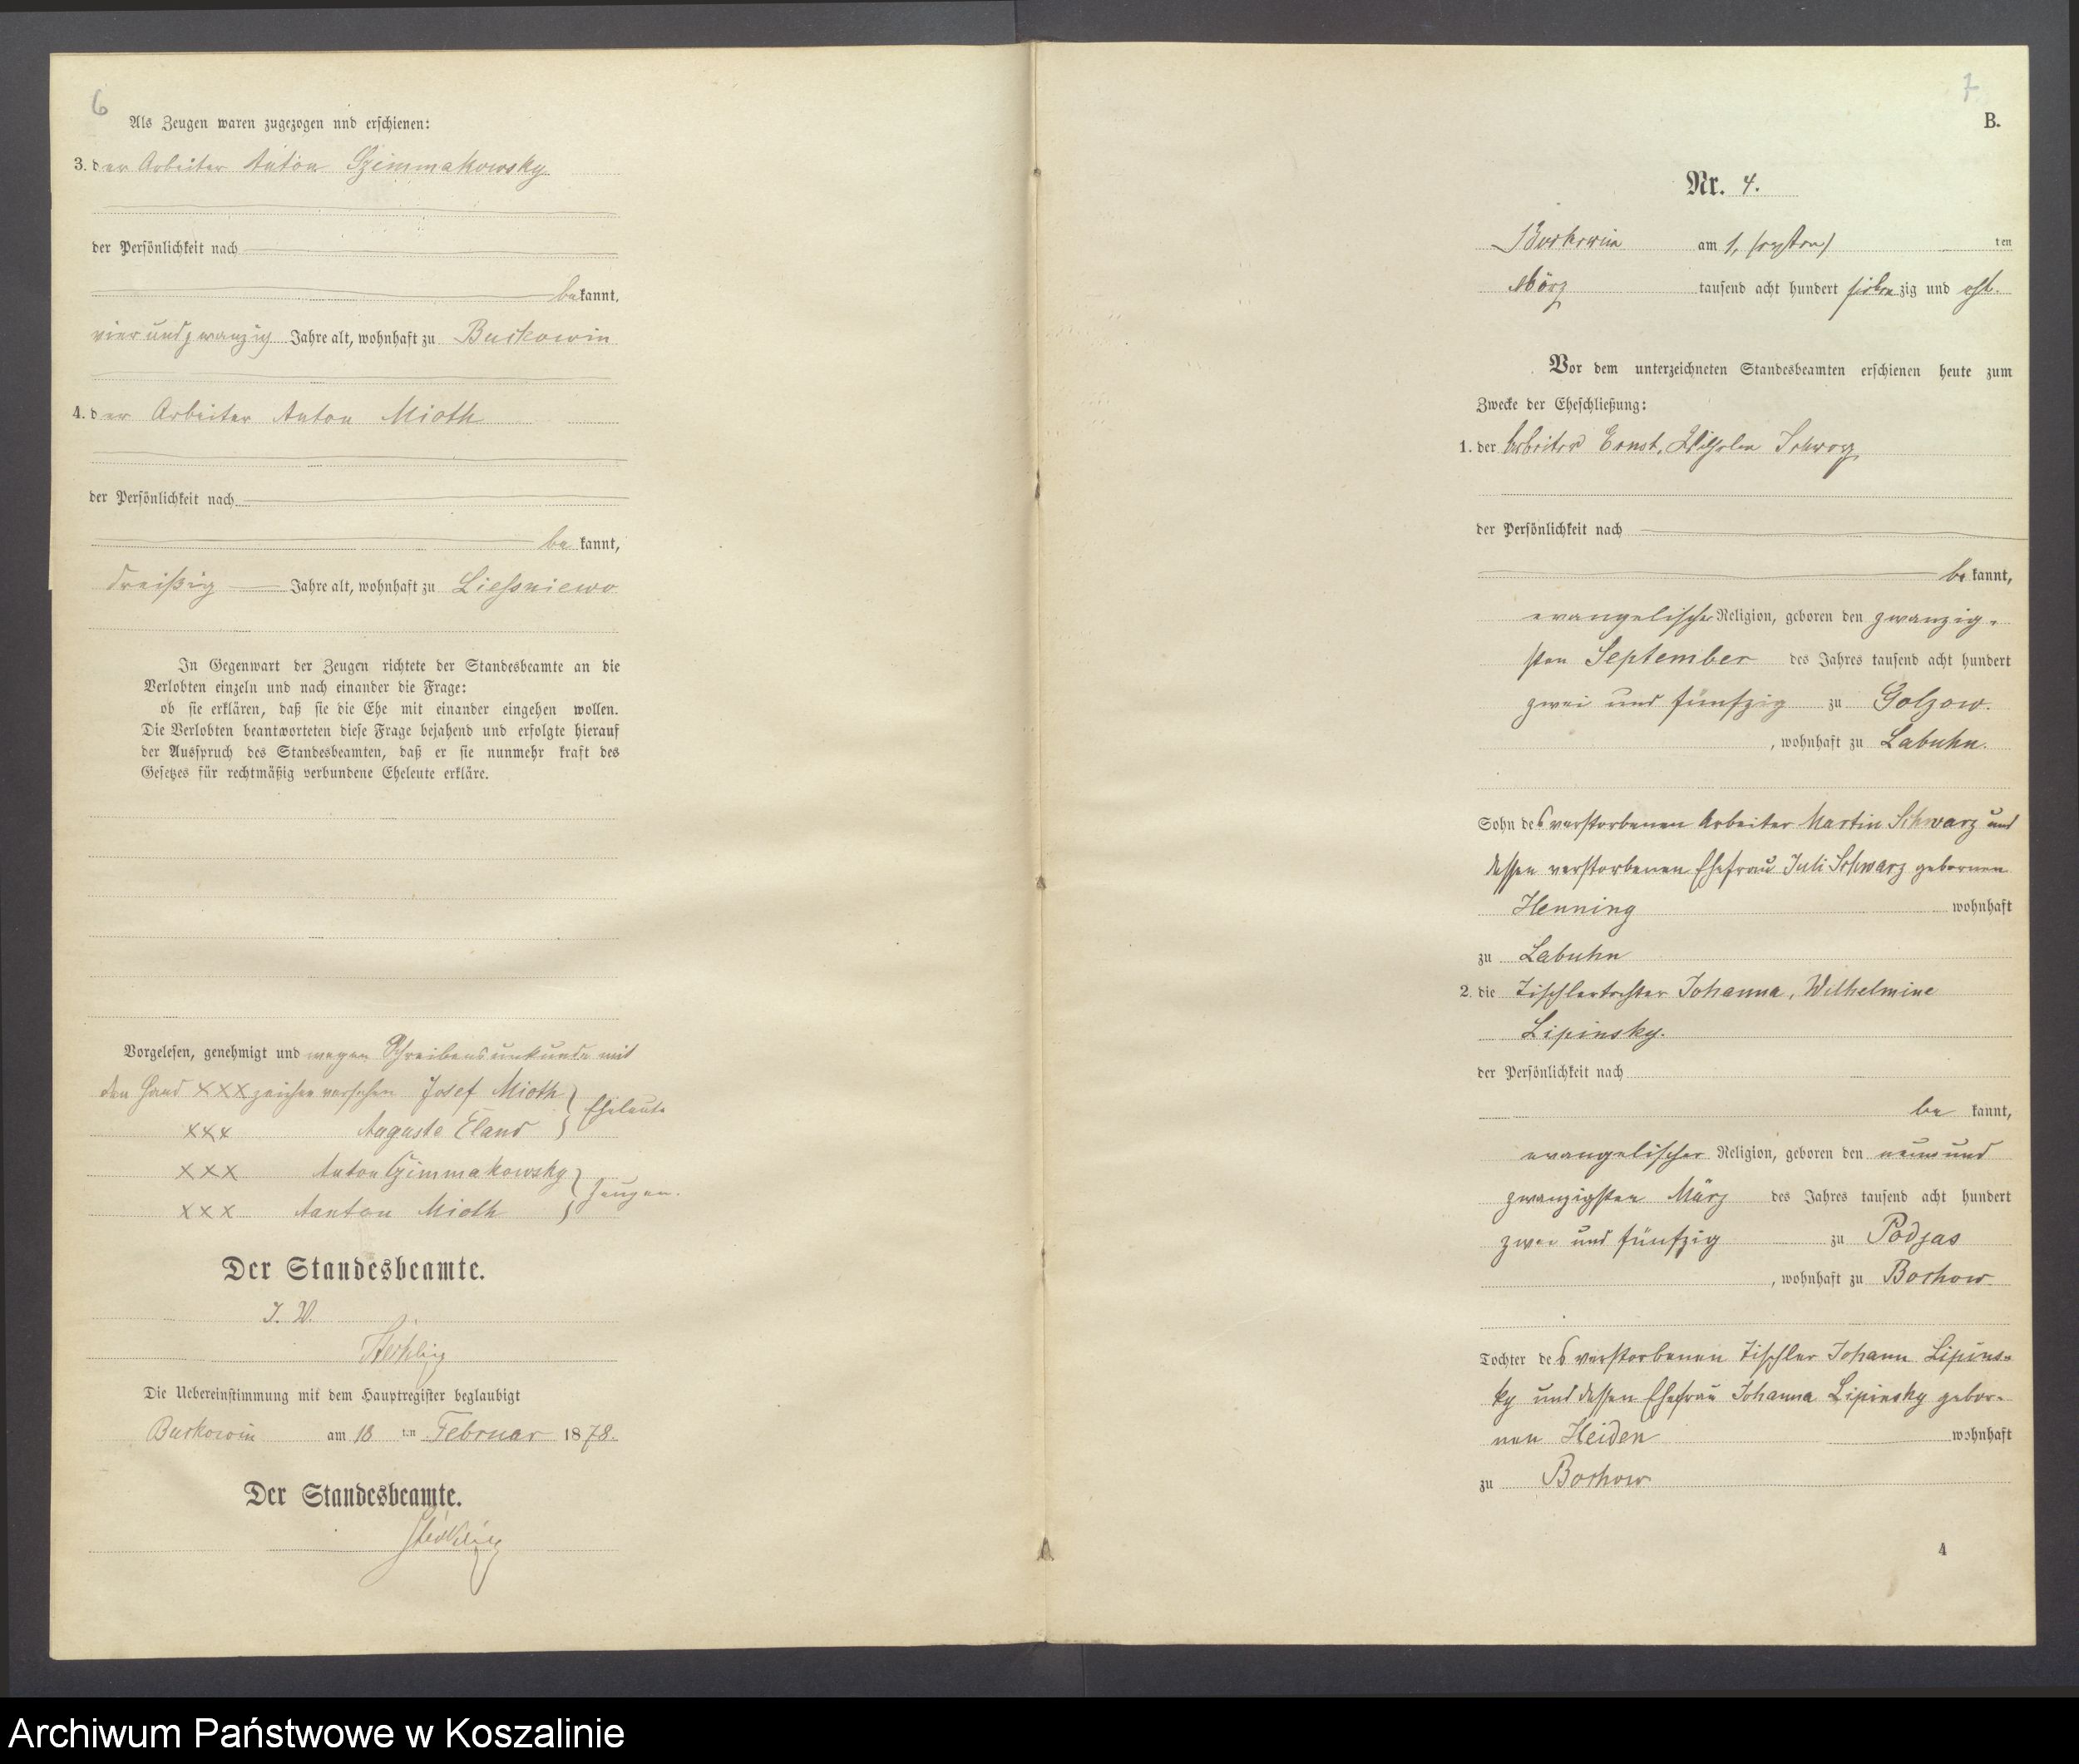 6
Als Zeugen waren zugezogen und erschienen:
3. der Arbeiter Anton Czimmakowsky
der Persönlichkeit nach
bekannt,
vier und zwanzig Jahre alt, wohnhaft zu Buckowin
4. der Arbeiter Anton Mioth
der Persönlichkeit nach
be kannt,
dreißig Jahre alt, wohnhaft zu Liessniewo
In Gegenwart der Zeugen richtete der Standesbeamte an die
Verlobten einzeln und nach einander die Frage:
ob sie erklären, daß sie die Ehe mit einander eingehen wollen.
Die Verlobten beantworteten diese Frage bejahend und erfolgte hierauf
der Ausspruch des Standesbeamten, daß er sie nunmehr kraft des
Gesetzes für rechtmäßig verbundene Eheleute erkläre.
Vorgelesen, genehmigt und wegen Schreibensunkunde mit
den Hand XXX zeichen versehen Josef Mioth
XXX Auguste Eland } Eheleute
XXX Anton Czimmakowsky
XXX Aanton Mioth } Zeugen.
Der Standesbeamte.
I. V.
Die Uebereinstimmung mit dem Hauptregister beglaubigt
Buckowin am 18 ten Februar 1878.
Der Standesbeamte.
7
B.
Nr. 4.
Buckowin am 1, (ersten) ten
März tausend acht hundert siebenzig und acht.
Vor dem unterzeichneten Standesbeamten erschienen heute zum
Zwecke der Eheschließung:
1. der Arbeiter Ernst, Wilhelm Schwarz
der Persönlichkeit nach
be kannt,
evangelischer Religion, geboren den zwanzig-
sten September des Jahres tausend acht hundert
zwei und fünfzig zu Golzow.
, wohnhaft zu Labuhn.
Sohn des verstorbenen Arbeiter Martin Schwarz und
dessen verstorbenen Ehefrau Juli Schwarz gebornen
Henning wohnhaft
zu Labuhn
2. die Tischlertochter Johanna, Wilhelmine
Lipinsky.
der Persönlichkeit nach
be kannt,
evangelischer Religion, geboren den neun und
zwanzigsten März des Jahres tausend acht hundert
zwei und fünfzig zu Podjas
, wohnhaft zu Bochow
Tochter des verstorbenen Tischler Johann Lipins-
ky und dessen Ehefrau Johanna Lipinsky gebor-
nen Heiden wohnhaft
zu Bochow
4
Archiwum Państwowe w Koszalinie